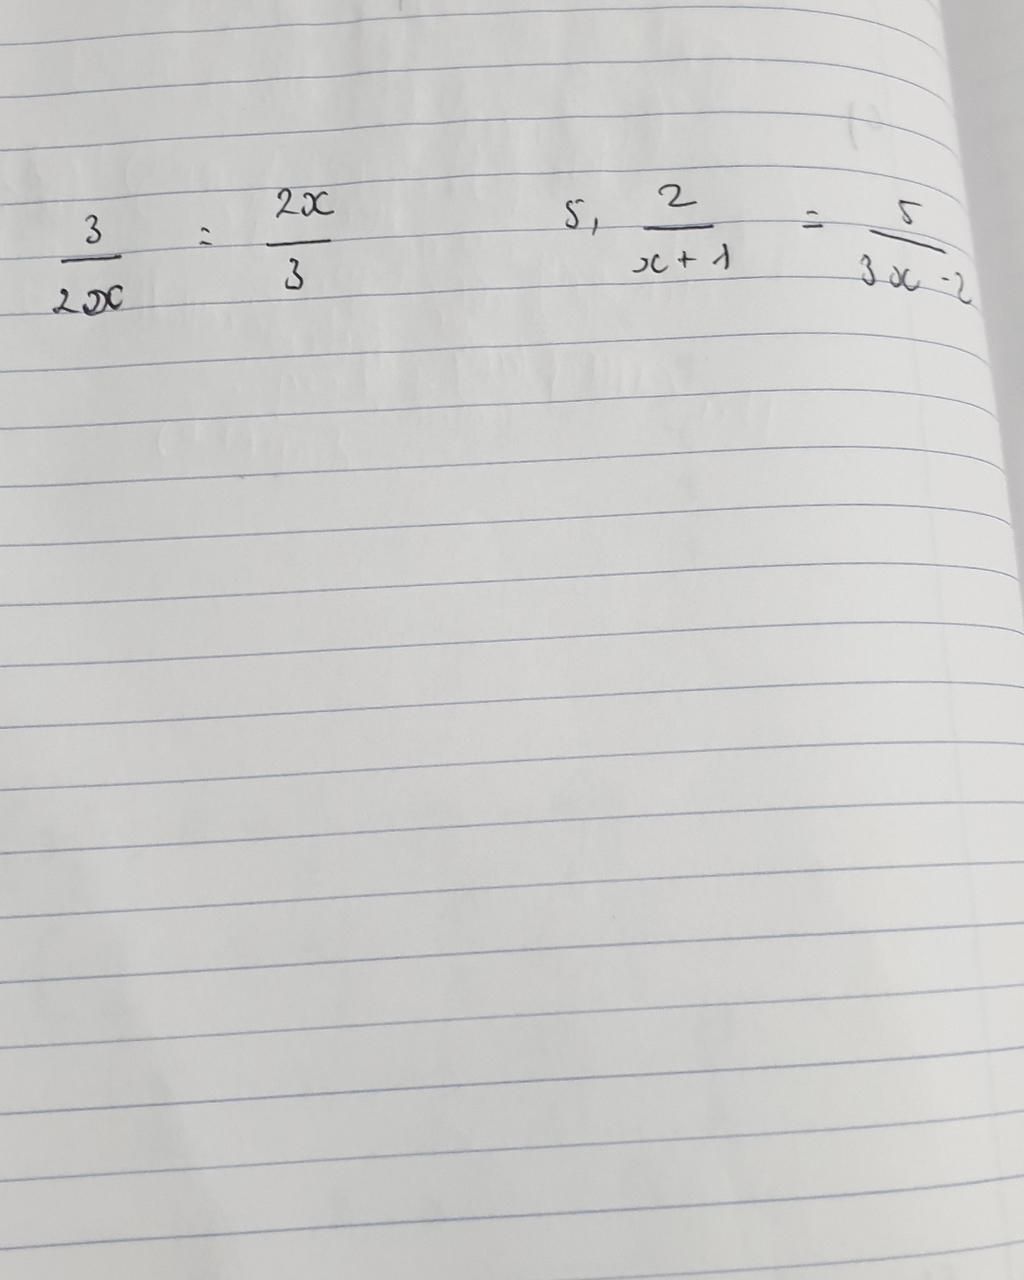 3/2x = 2x/3    5, 2/(x+1) = 5/(3x-2)